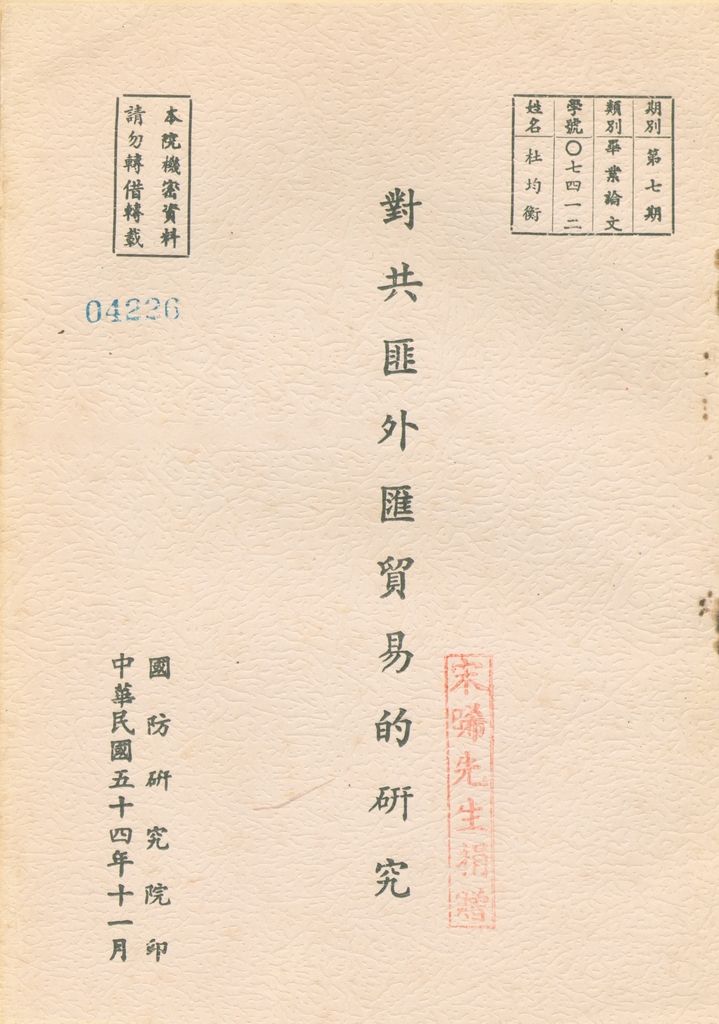 期別 第七期
類別 畢業論文
學號 〇七四一二
姓名 杜均衡
對共匪外匯貿易的研究
宋晞先生捐贈
本院機密資料
請勿轉借轉載
04226
國防研究院印
中華民國五十四年十一月